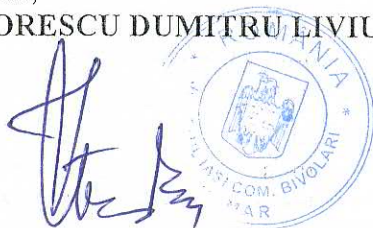 ORESCU DUMITRU LIVIU
* ROMÂNIA *
IAȘI COM. BIVOLARI
MAR